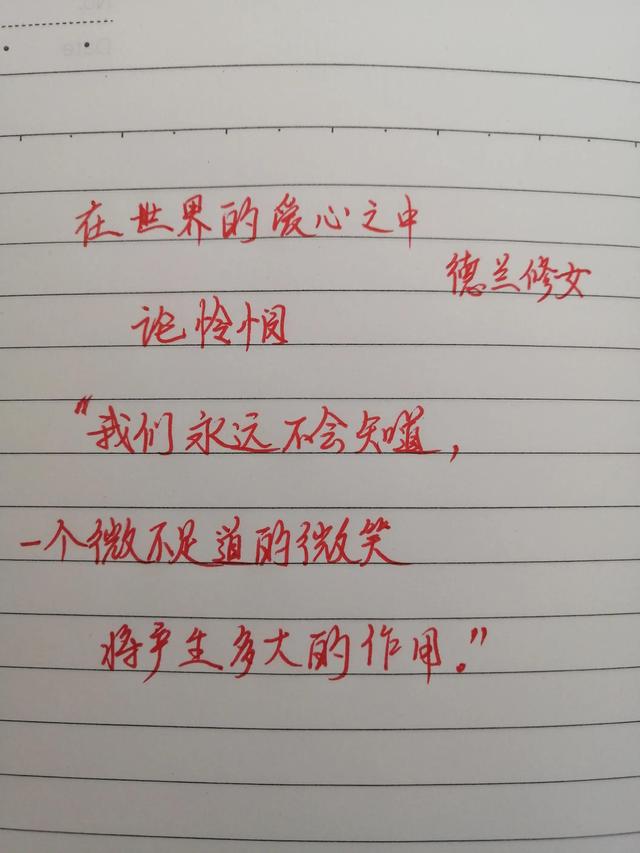 No.
Date
在世界的爱心之中
德兰修女
论怜悯
“我们永远不会知道，
一个微不足道的微笑
将产生多大的作用。”